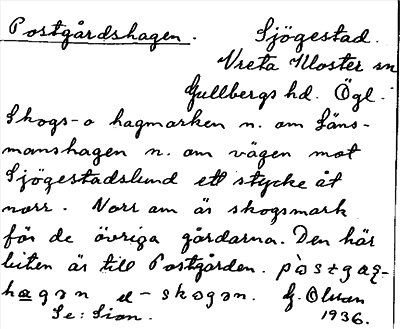 Postgårdshagen. Sjögestad.
Vreta Kloster sn
Gullbergs hd. Ögl.
Skogs- o hagmarken n. om Läns-
manshagen n. om vägen mot
Sjögestadslund ett stycke åt
norr. Norr om är skogsmark
för de övriga gårdarna. Den här
biten är till Postgården.
G. Olson
Se: Sion. 1936.